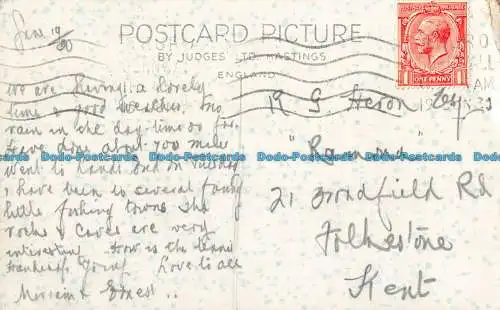 June 19/30
POSTCARD PICTURE
BY JUDGES LTD HASTINGS
ENGLAND
ONE PENNY
We are having a lovely
time & good weather, no
rain in the day time so far
have done about 700 miles
went to Lands End on Tuesday
I have been to several funny
little fishing towns the
rocks & caves are very
interesting. How is the tennis
Love to all
Ernest
R G Heron Esq
21 Broadfield Rd
Folkestone
Kent
Dodo-Postcards Dodo-Postcards Dodo-Postcards Dodo-Postcards